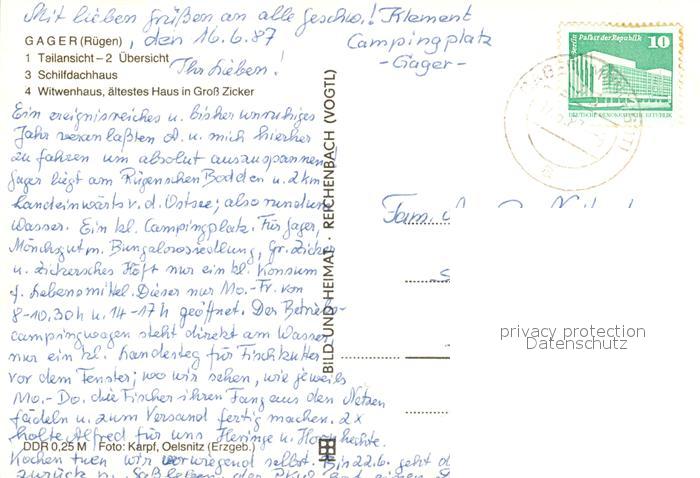 Mit lieben Grüßen an alle Geschw.! Klement
Campingplatz
- Gager -
GAGER (Rügen), den 16.6.87
1 Teilansicht – 2 Übersicht
3 Schilfdachhaus
4 Witwenhaus, ältestes Haus in Groß Zicker
Ihr Lieben!
Ein ereignisreiches u. bisher unruhiges
Jahr veranlaßten d. u. mich hierher
zu fahren um absolut auszuspannen!
Gager liegt am Rügenschen Bodden u. 2 km
landeinwärts v. d. Ostsee; also rundum
Wasser. Ein kl. Campingplatz. Für Gager,
Mönchgut m. Bungalowsiedlung, Gr. Zicker
u. Zickersches Höft nur ein kl. Konsum
f. Lebensmittel. Dieser nur Mo.-Fr. von
8-10.30 h u. 14-17 h geöffnet. Der Betriebs-
campingwagen steht direkt am Wasser,
nur ein kl. Landesteg für Fischkutter
vor dem Fenster; wo wir sehen, wie jeweils
Mo.- Do. die Fischer ihren Fang aus den Netzen
fädeln u. zum Versand fertig machen. 2x
holte Alfred für uns Heringe u. Hornhechte.
DDR 0,25 M Foto: Karpf, Oelsnitz (Erzgeb.)
Kochen tuen wir vorwiegend selbst. Bis 22.6. geht d
zurück n.
BILD UND HEIMAT · REICHENBACH (VOGTL)
Berlin Palast der Republik
10
DEUTSCHE DEMOKRATISCHE REPUBLIK
Fam.
privacy protection
Datenschutz